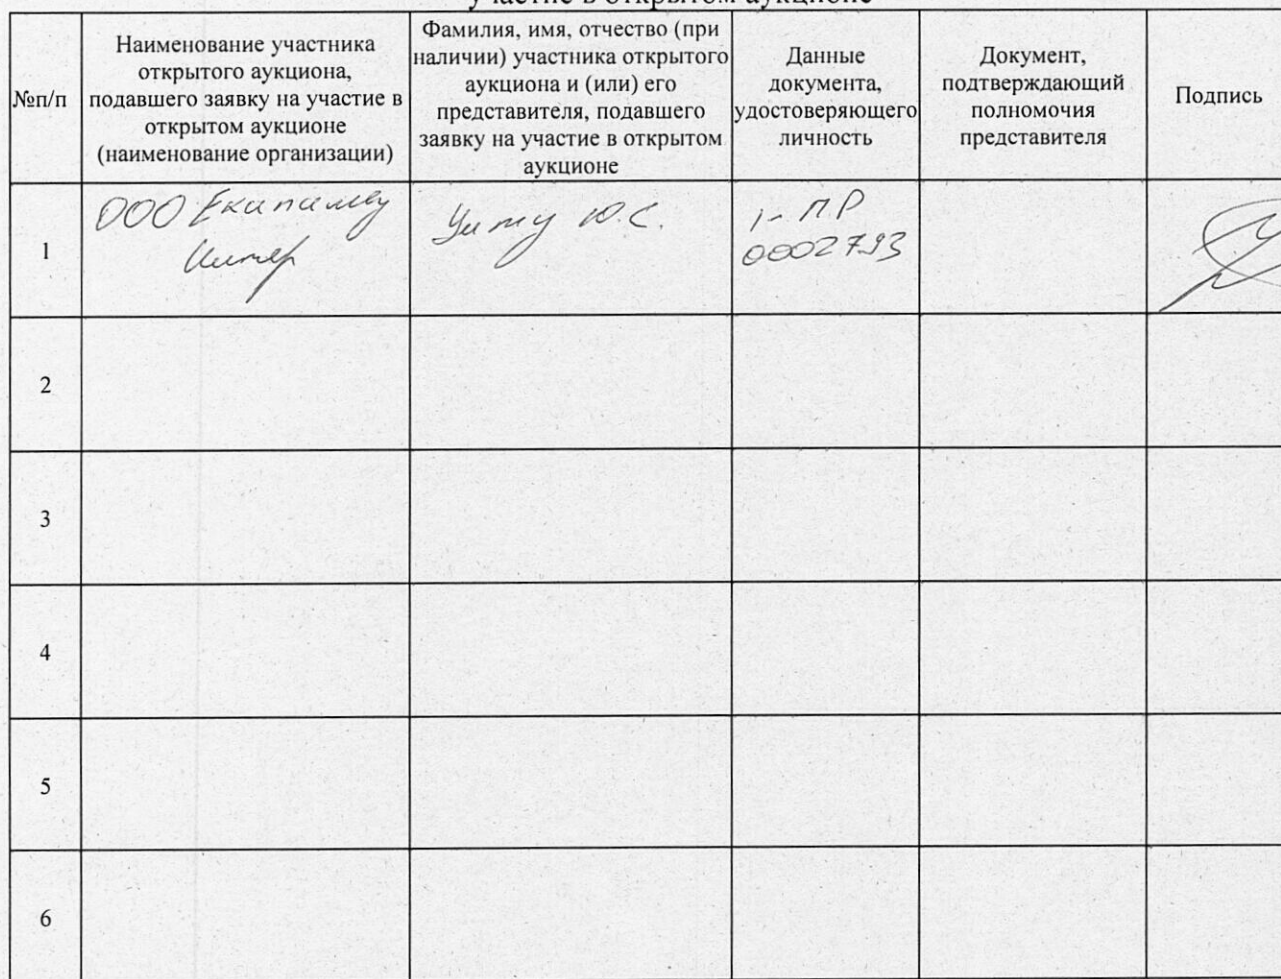 участие в открытом аукционе
№п/п
Наименование участника
открытого аукциона,
подавшего заявку на участие в
открытом аукционе
(наименование организации)
Фамилия, имя, отчество (при
наличии) участника открытого
аукциона и (или) его
представителя, подавшего
заявку на участие в открытом
аукционе
Данные
документа,
удостоверяющего
личность
Документ,
подтверждающий
полномочия
представителя
Подпись
1
ООО
Ю.С.
1-ПР
0002793
2
3
4
5
6